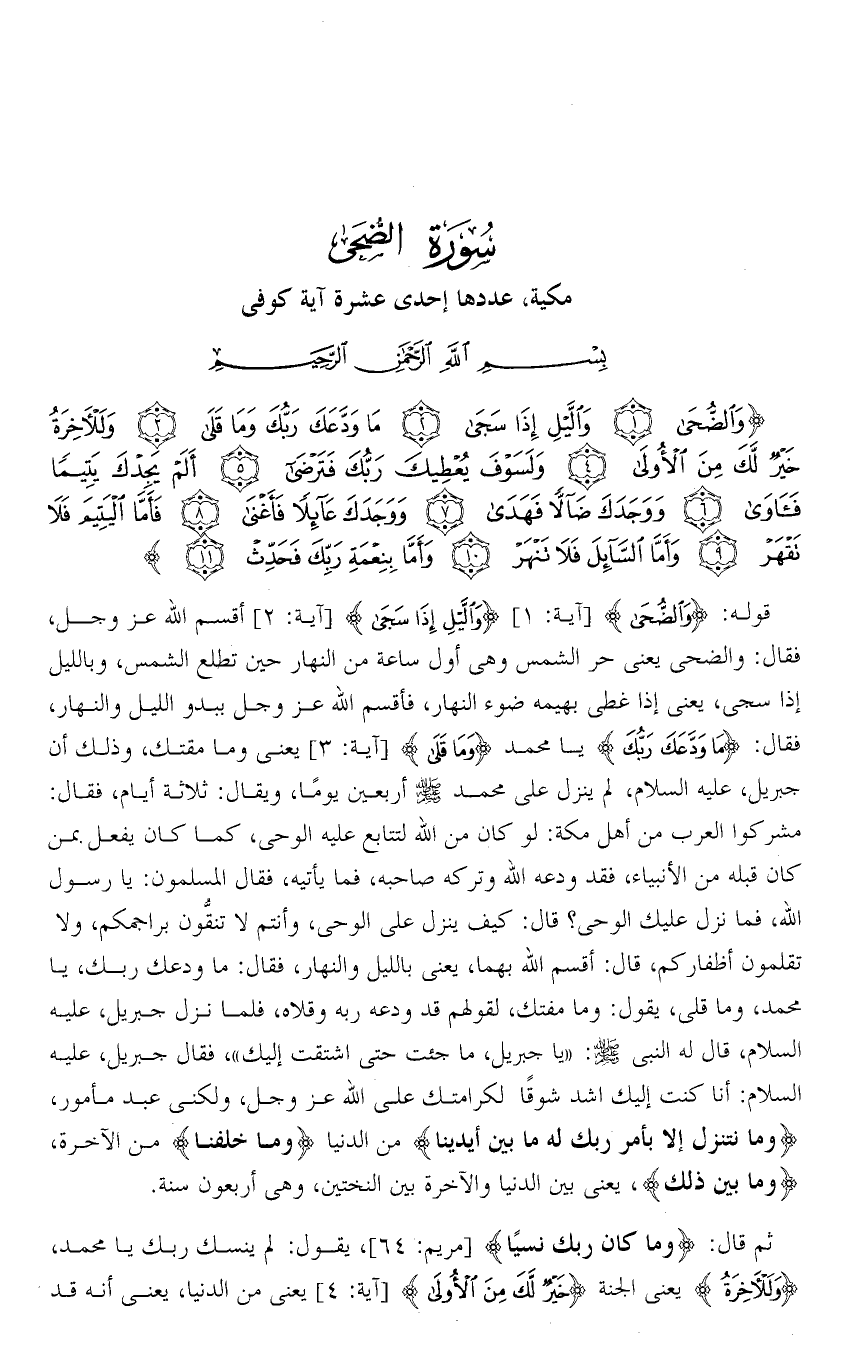 سُورَةُ الضُّحَىٰ
مكية، عددها إحدى عشرة آية كوفى
بِسْمِ اللَّهِ الرَّحْمَٰنِ الرَّحِيمِ
﴿وَٱلضُّحَىٰ ۝١ وَٱلَّيْلِ إِذَا سَجَىٰ ۝٢ مَا وَدَّعَكَ رَبُّكَ وَمَا قَلَىٰ ۝٣ وَلَلْءَاخِرَةُ
خَيْرٌ لَّكَ مِنَ ٱلْأُولَىٰ ۝٤ وَلَسَوْفَ يُعْطِيكَ رَبُّكَ فَتَرْضَىٰٓ ۝٥ أَلَمْ يَجِدْكَ يَتِيمًا
فَـَٔاوَىٰ ۝٦ وَوَجَدَكَ ضَآلًّا فَهَدَىٰ ۝٧ وَوَجَدَكَ عَآئِلًا فَأَغْنَىٰ ۝٨ فَأَمَّا ٱلْيَتِيمَ فَلَا
تَقْهَرْ ۝٩ وَأَمَّا ٱلسَّآئِلَ فَلَا تَنْهَرْ ۝١٠ وَأَمَّا بِنِعْمَةِ رَبِّكَ فَحَدِّثْ ۝١١ ﴾
قوله: ﴿وَٱلضُّحَىٰ ﴾ [آية: ١] ﴿وَٱلَّيْلِ إِذَا سَجَىٰ ﴾ [آية: ٢] أقسم الله عز وجل،
فقال: والضحى يعنى حر الشمس وهى أول ساعة من النهار حين تطلع الشمس، وبالليل
إذا سجى، يعنى إذا غطى بهيمه ضوء النهار، فأقسم الله عز وجل ببدو الليل والنهار،
فقال: ﴿مَا وَدَّعَكَ رَبُّكَ ﴾ يا محمد ﴿وَمَا قَلَىٰ ﴾ [آية: ٣] يعنى وما مقتك، وذلك أن
جبريل، عليه السلام، لم ينزل على محمد ﷺ أربعين يومًا، ويقال: ثلاثة أيام، فقال:
مشركوا العرب من أهل مكة: لو كان من الله لتتابع عليه الوحى، كما كان يفعل بمن
كان قبله من الأنبياء، فقد ودعه الله وتركه صاحبه، فما يأتيه، فقال المسلمون: يا رسول
الله، فما نزل عليك الوحى؟ قال: كيف ينزل على الوحى، وأنتم لا تنقُّون براجمكم، ولا
تقلمون أظفاركم، قال: أقسم الله بهما، يعنى بالليل والنهار، فقال: ما ودعك ربك، يا
محمد، وما قلى، يقول: وما مفتك، لقولهم قد ودعه ربه وقلاه، فلما نزل جبريل، عليه
السلام، قال له النبى ﷺ: «يا جبريل، ما جئت حتى اشتقت إليك»، فقال جبريل، عليه
السلام: أنا كنت إليك اشد شوقًا لكرامتك على الله عز وجل، ولكنى عبد مأمور،
﴿وما نتنزل إلا بأمر ربك له ما بين أيدينا﴾ من الدنيا ﴿وما خلفنا﴾ من الآخرة،
﴿وما بين ذلك﴾، يعنى بين الدنيا والآخرة بين النختين، وهى أربعون سنة.
ثم قال: ﴿وما كان ربك نسيًا﴾ [مريم: ٦٤]، يقول: لم ينسك ربك يا محمد،
﴿وَلَلْءَاخِرَةُ ﴾ يعنى الجنة ﴿خَيْرٌ لَّكَ مِنَ ٱلْأُولَىٰ ﴾ [آية: ٤] يعنى من الدنيا، يعنى أنه قد